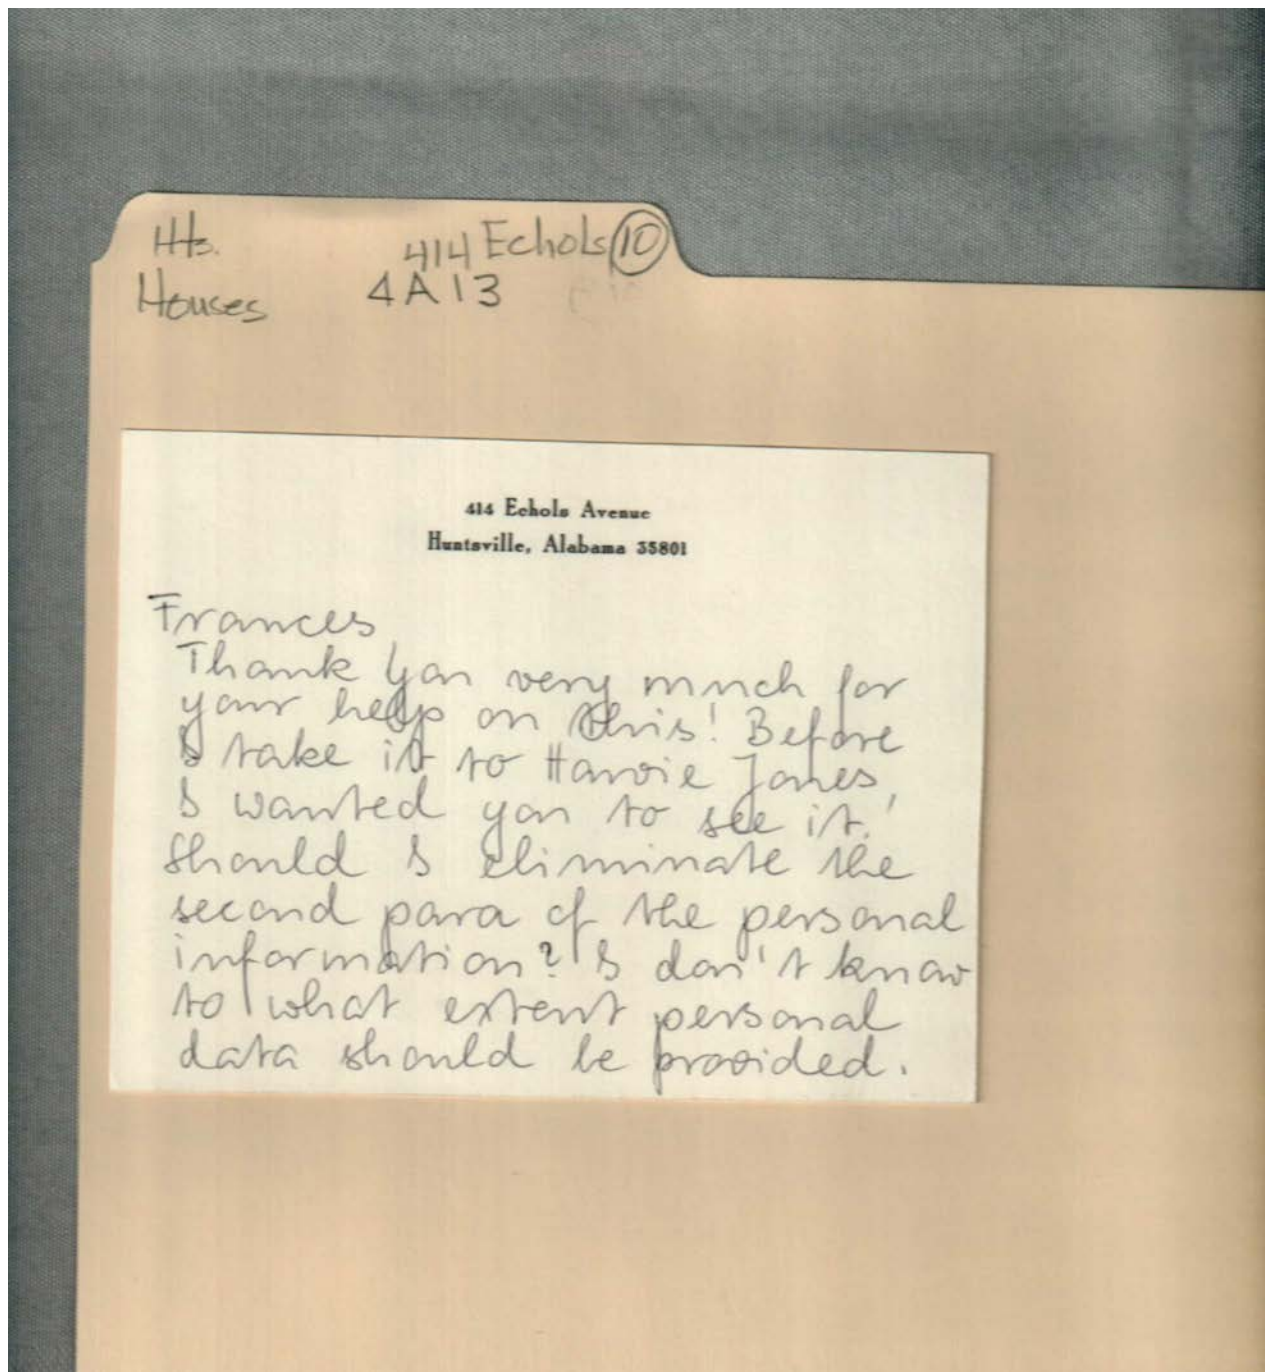 Hts. 414 Echols 10
Houses 4A13
414 Echols Avenue
Huntsville, Alabama 35801
Frances
Thank you very much for
your help on this! Before
I take it to Harvie Jones,
I wanted you to see it.
Should I eliminate the
second para of the personal
information? I don't know
to what extent personal
data should be provided.